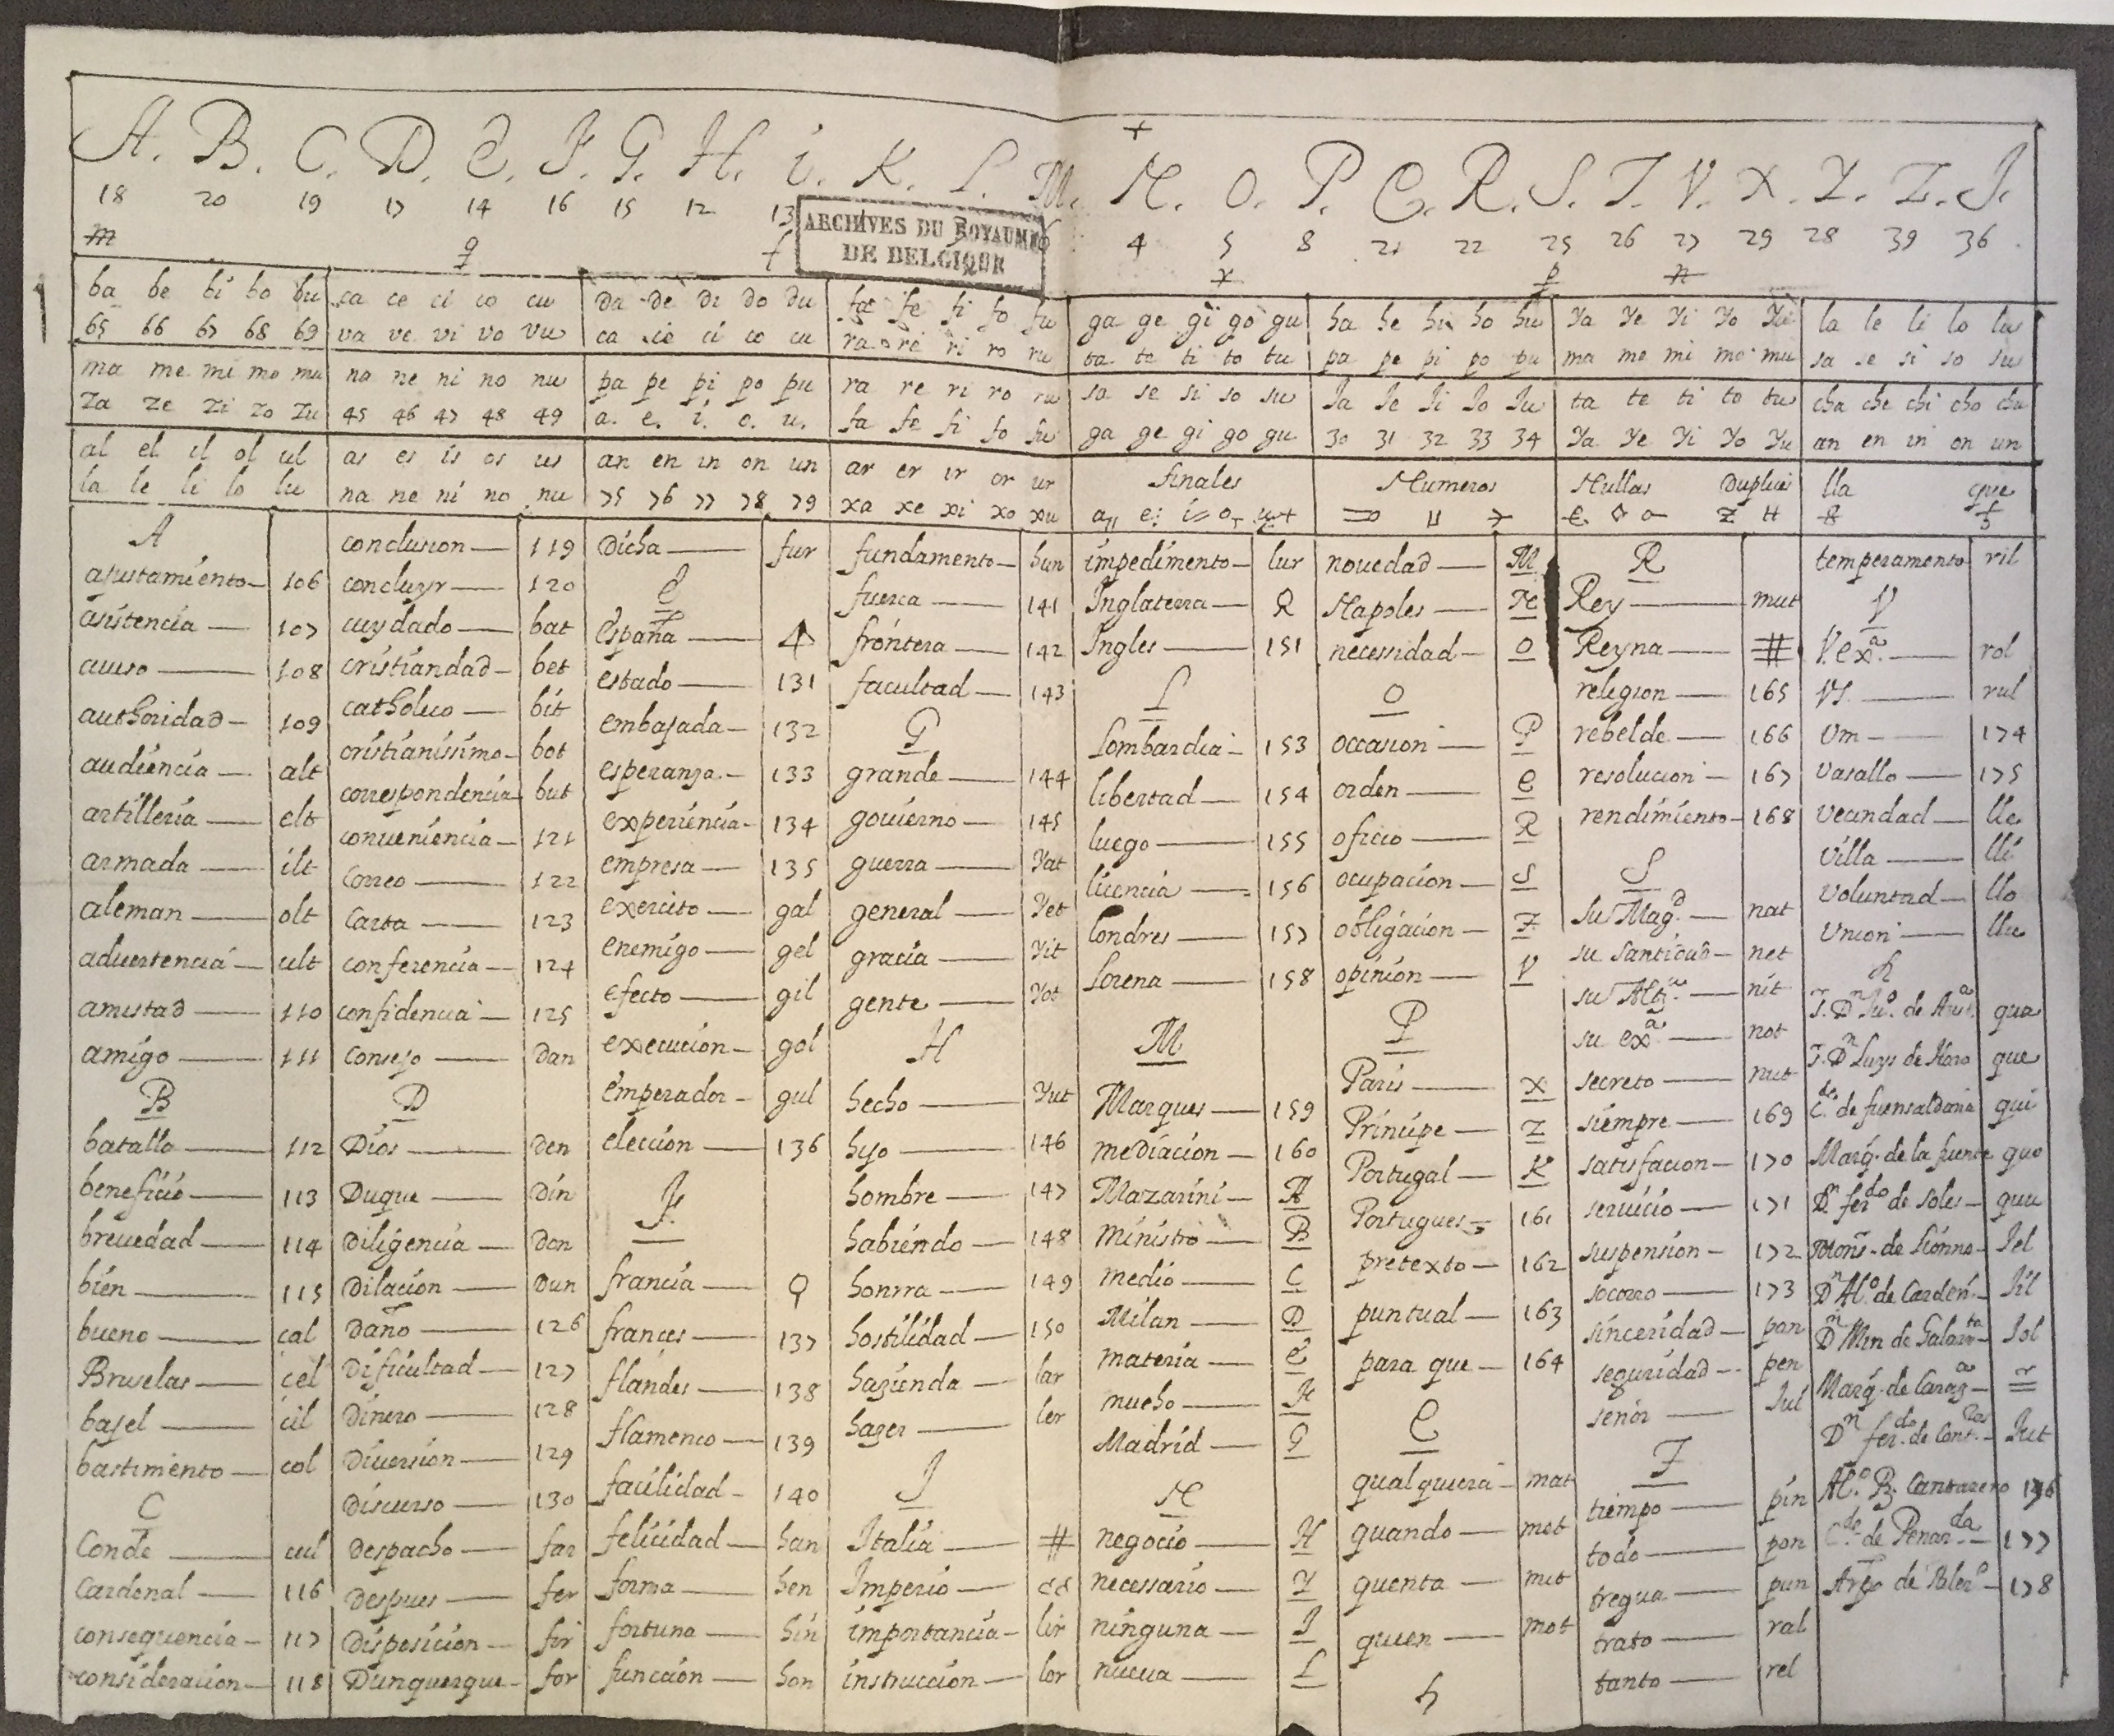 A. B. C. D. E. F. G. H. i. K. L. M. N. O. P. Q. R. S. T. V. X. Y. Z. J.
18 20 19 17 14 16 15 12 13 4 5 8 21 22 25 26 27 29 28 39 36
ARCHIVES DU ROYAUME
DE BELGIQUE
ba be bi bo bu ca ce ci co cu da de di do du fa fe fi fo fu ga ge gi go gu ha he hi ho hu ya ye yi yo yu la le li lo lu
65 66 67 68 69 va ve vi vo vu ca ce ci co cu ra re ri ro ru ta te ti to tu pa pe pi po pu ma me mi mo mu sa se si so su
ma me mi mo mu na ne ni no nu pa pe pi po pu ra re ri ro ru sa se si so su Ja Je Ji Jo Ju ta te ti to tu cha che chi cho chu
za ze zi zo zu 45 46 47 48 49 a. e. i. o. u. fa fe fi fo fu ga ge gi go gu 30 31 32 33 34 ya ye yi yo yu an en in on un
al el il ol ul as es is os us an en in on un ar er ir or ur finales Numeros Nullas Duplices lla que
la le li lo lu na ne ni no nu 75 76 77 78 79 xa xe xi xo xu
A
ajustamiento 106
asistencia 107
auiso 108
authoridad 109
audiencia alt
artilleria elt
armada ilt
aleman olt
aduertencia ult
amistad 110
amigo 111
B
batalla 112
beneficio 113
breuedad 114
bien 115
bueno cal
Bruselas cel
bajel cil
bastimento col
C
Conde cul
Cardenal 116
consequencia 117
consideracion 118
conclusion 119
concluyr 120
cuydado bat
cristiandad bet
catholico bit
cristianissimo bot
correspondencia but
conueniencia 121
Correo 122
Carta 123
conferencia 124
confidencia 125
Consejo dan
D
Dios den
Duque din
diligencia don
dilacion dun
daño 126
dificultad 127
dinero 128
diuersion 129
discurso 130
despacho far
despues fer
disposicion fir
Dunquerque for
dicha fur
E
españa
estado 131
embajada 132
esperanza 133
experiencia 134
empresa 135
exercito gal
enemigo gel
efecto gil
execucion gol
emperador gul
eleccion 136
F
francia
frances 137
flandes 138
flamenco 139
facilidad 140
felicidad han
forma hen
fortuna hin
funcion hon
fundamento hun
fuerca 141
frontera 142
facultad 143
G
grande 144
gouierno 145
guerra yat
general yet
gracia yit
gente yot
H
hecho yut
hijo 146
hombre 147
habiendo 148
honrra 149
hostilidad 150
hazienda lar
hazer ler
J
Italia #
Imperio
importancia lir
instruccion lor
impedimento lur
Inglaterra R
Ingles 151
L
Lombardia 153
libertad 154
luego 155
licencia 156
Londres 157
Lorena 158
M
Marques 159
mediacion 160
Mazarini A
ministro B
medio C
Milan D
materia E
mucho F
Madrid G
N
negocio H
necessario Y
ninguna J
nueua L
nouedad M
Napoles N
necessidad O
O
occasion P
orden Q
oficio R
ocupacion S
obligacion T
opinion V
P
Paris X
Principe Z
Portugal K
Portugues 161
pretexto 162
puntual 163
para que 164
Q
qualquiera mat
quando met
quenta mit
quien mot
R
Rey mut
Reyna #
religion 165
rebelde 166
resolucion 167
rendimiento 168
S
su Magd. nat
su santidad net
su Altza. nit
su exa. not
secreto nut
siempre 169
satisfacion 170
seruicio 171
suspension 172
socorro 173
sinceridad pan
seguridad pen
señor Jul
T
tiempo pin
todo pon
tregua pun
trato ral
tanto rel
temperamento ril
V
V. exa. rol
VS rul
Vm 174
Vasallo 175
Vecindad lle
Villa lli
Voluntad llo
Union llu
qua
Sr. Dn Luys de Haro que
Cde. de fuensaldaña qui
Marq. de la fuente quo
Dn ferdo de soles quu
Monsr. de Lionne Jel
Dn Alo. de Carden. Jil
Jol
Marq. de Caraza
Dn ferdo. de Contras Jut
Cantarero 176
Cde. de Penarda 177
178